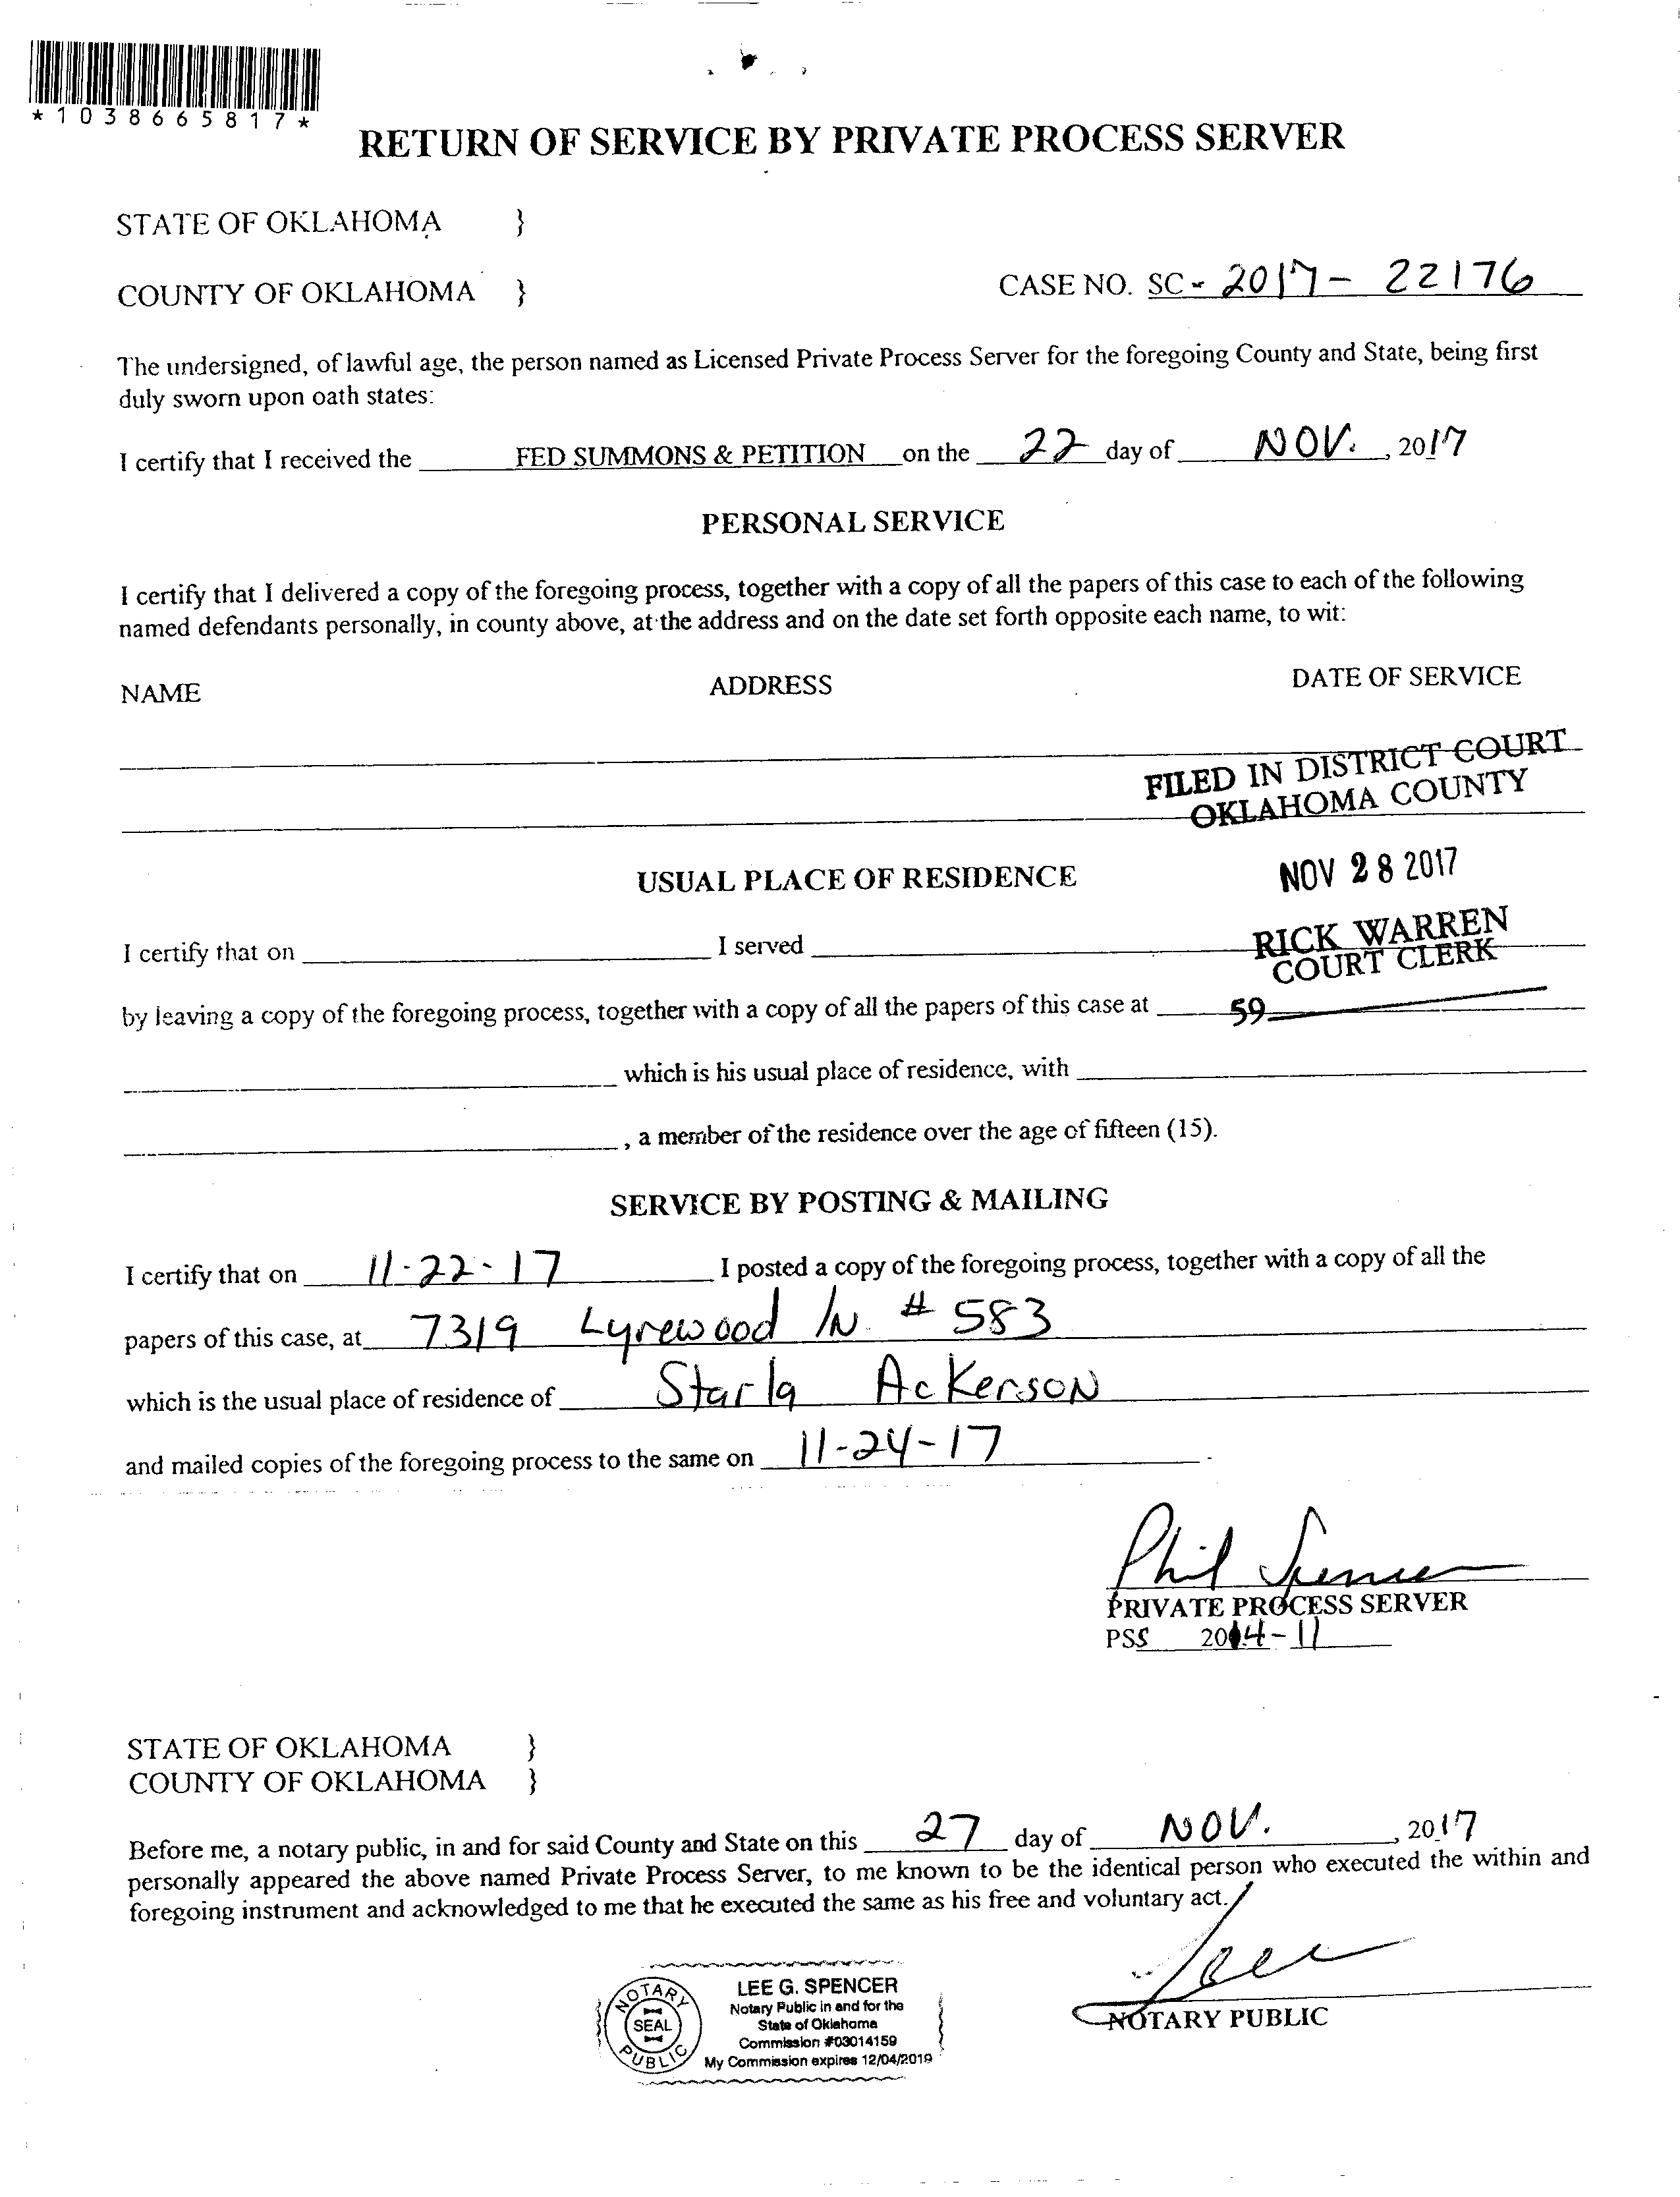 *1038665817*
RETURN OF SERVICE BY PRIVATE PROCESS SERVER
STATE OF OKLAHOMA }
COUNTY OF OKLAHOMA } CASE NO. SC - 2017 - 22176
The undersigned, of lawful age, the person named as Licensed Private Process Server for the foregoing County and State, being first
duly sworn upon oath states:
I certify that I received the FED SUMMONS & PETITION on the 22 day of NOV. , 2017
PERSONAL SERVICE
I certify that I delivered a copy of the foregoing process, together with a copy of all the papers of this case to each of the following
named defendants personally, in county above, at the address and on the date set forth opposite each name, to wit:
NAME ADDRESS DATE OF SERVICE
FILED IN DISTRICT COURT
OKLAHOMA COUNTY
USUAL PLACE OF RESIDENCE NOV 28 2017
RICK WARREN
COURT CLERK
I certify that on I served
by leaving a copy of the foregoing process, together with a copy of all the papers of this case at 59
which is his usual place of residence, with
, a member of the residence over the age of fifteen (15).
SERVICE BY POSTING & MAILING
I certify that on 11-22-17 I posted a copy of the foregoing process, together with a copy of all the
papers of this case, at 7319 Lyrewood ln. # 583
which is the usual place of residence of Starla Ackerson
and mailed copies of the foregoing process to the same on 11-24-17
Phil Spencer
PRIVATE PROCESS SERVER
PSS 2014-11
STATE OF OKLAHOMA }
COUNTY OF OKLAHOMA }
Before me, a notary public, in and for said County and State on this 27 day of NOV. , 2017
personally appeared the above named Private Process Server, to me known to be the identical person who executed the within and
foregoing instrument and acknowledged to me that he executed the same as his free and voluntary act.
Lee
NOTARY PUBLIC
NOTARY
SEAL
PUBLIC
LEE G. SPENCER
Notary Public in and for the
State of Oklahoma
Commission #03014159
My Commission expires 12/04/2019